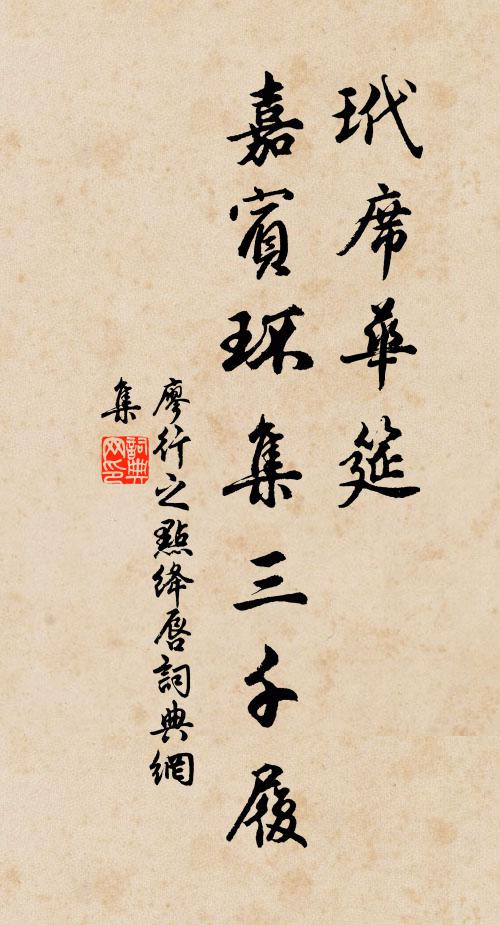 玳席華筵
嘉賓环集三千履
廖行之點絳唇詞典網
集
詞典
网印